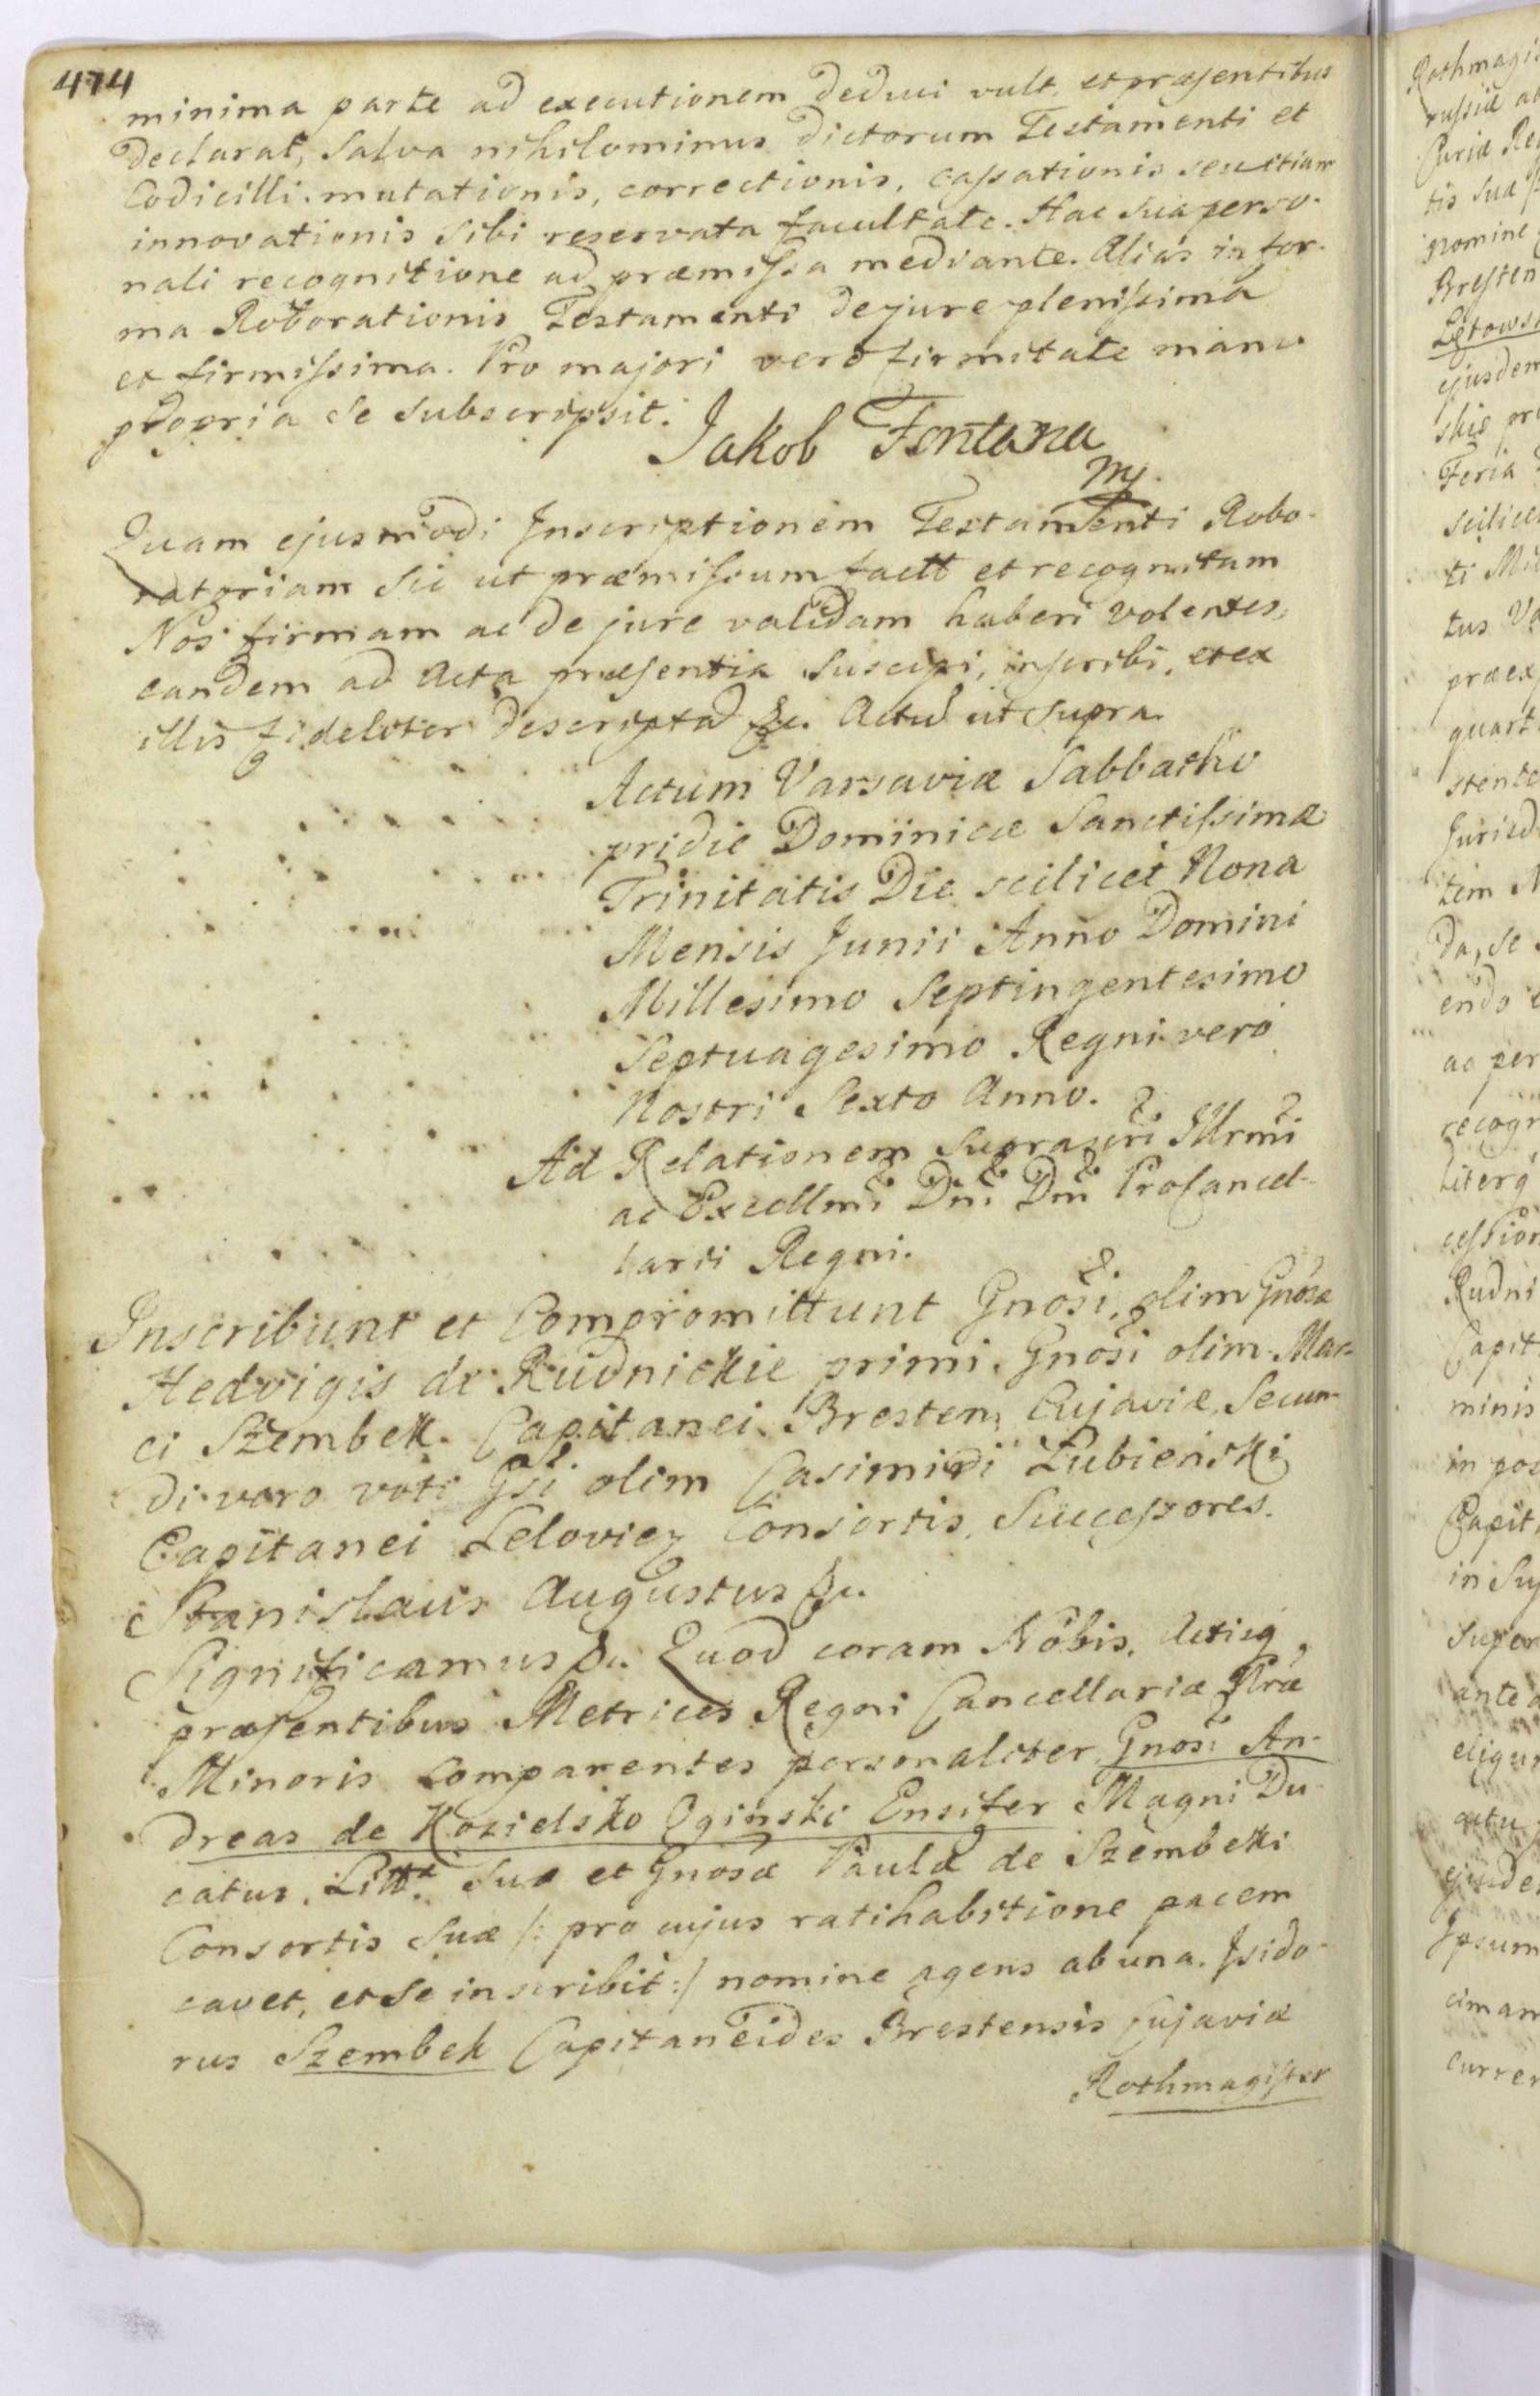 474
minima parte ad executionem deduci vult, et præsentibus
declarat, Salva nihilominus dictorum Testamenti et
Codicilli mutationis, correctionis, cassationis seu etiam
innovationis sibi reservata facultate. Hac sua perso-
nali recognitione ad præmissa mediante. Alias in for-
ma Roborationis Testamenti de jure plenissima
et firmissima. Pro majori vero firmitate manu
propria se subscripsit.
Jakob Fontana
mp
Quam ejusmodi Inscriptionem Testamenti Robo-
ratoriam sic ut præmissum factt et recognitam
Nos firmam ac de jure validam haberi volentes,
eandem ad Acta præsentia suscipi, inscribi, et ex
illis fideliter descriptad &c. Actu ut supra.
Actum Varsaviæ Sabbatho
pridie Dominicæ Sanctissimæ
Trinitatis Die scilicet Nona
Mensis Junii Anno Domini
Millesimo Septingentesimo
Septuagesimo Regni vero
Nostri Sexto Anno.
Ad Relationem suprascri Illrmi
ac Excellmi Dni Dni Procancel-
larii Regni.
Inscribunt et Compromittunt Gnosi, olim Gnosæ
Hedvigis de Rudnickie primi, Gnosi olim Mar-
ci Szembek Capitanei Bresten, Cujaviæ, Secun-
di vero voti Gsi olim Casimiri Łubienski
Capitanei Leloviez Consortis, Successores.
Stanislaus Augustus &c.
Significamus &c. Quod coram Nobis, Actisq
præsentibus Metrices Regni Cancellariæ Nræ
Minoris Comparentes personaliter Gnosi An-
dreas de Kozielsko Oginski Ensifer Magni Du-
catus Litt. Suo et Gnosæ Paulæ de Szembeki
Consortis Suæ /: pro cujus ratihabitione pacem
cavet, et se inscribit :/ nomine agens ab una. Isido-
rus Szembek Capitaneides Brestensis Cujaviæ
Rothmagister